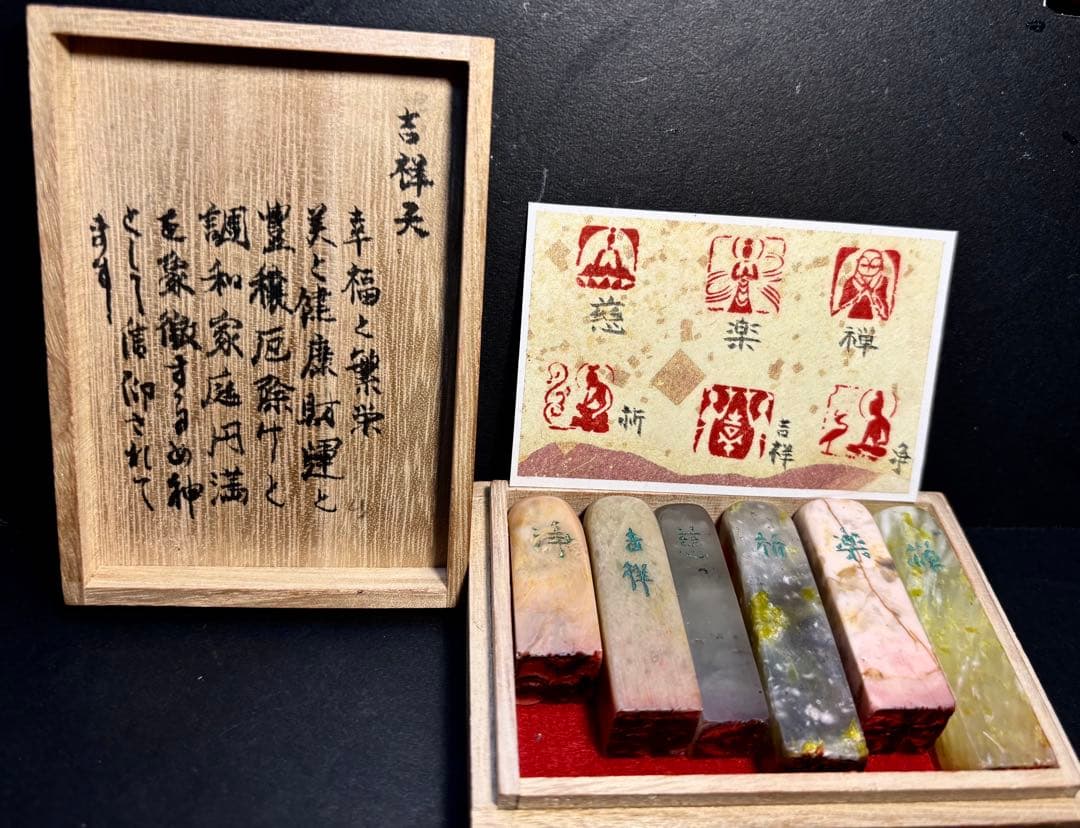 吉祥天
幸福と繁栄
美と健康財運と
豐穣厄除ケと
調和家庭円満
を象徴する女神
として信仰されて
ます
慈
楽
禅
祈
吉祥
浄
浄
吉祥
慈
祈
楽
禅